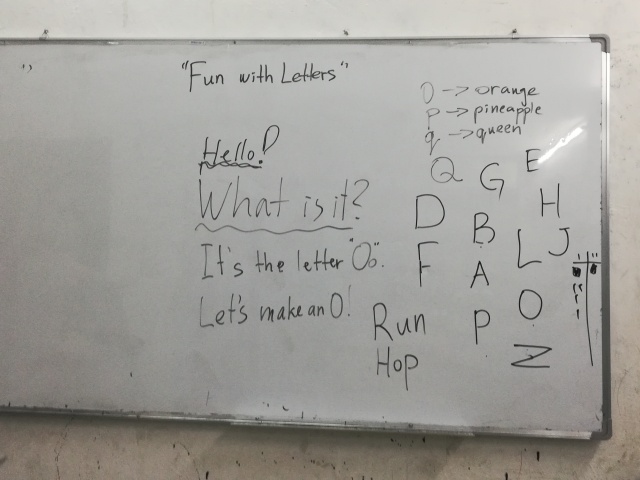 "Fun with Letters"
O -> orange
p -> pineapple
q -> queen
Hello!
What is it?
It's the letter "Oo".
Let's make an O!
Run
Hop
Q G E
D B H
F A L J
P O
Z